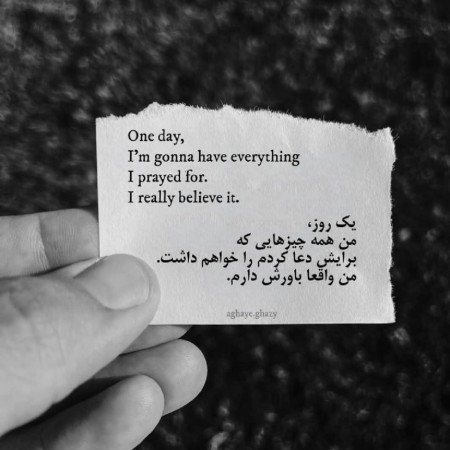 One day,
I'm gonna have everything
I prayed for.
I really believe it.
یک روز،
من همه چیزهایی که
برایش دعا کردم را خواهم داشت.
من واقعا باورش دارم.
aghaye.ghazy